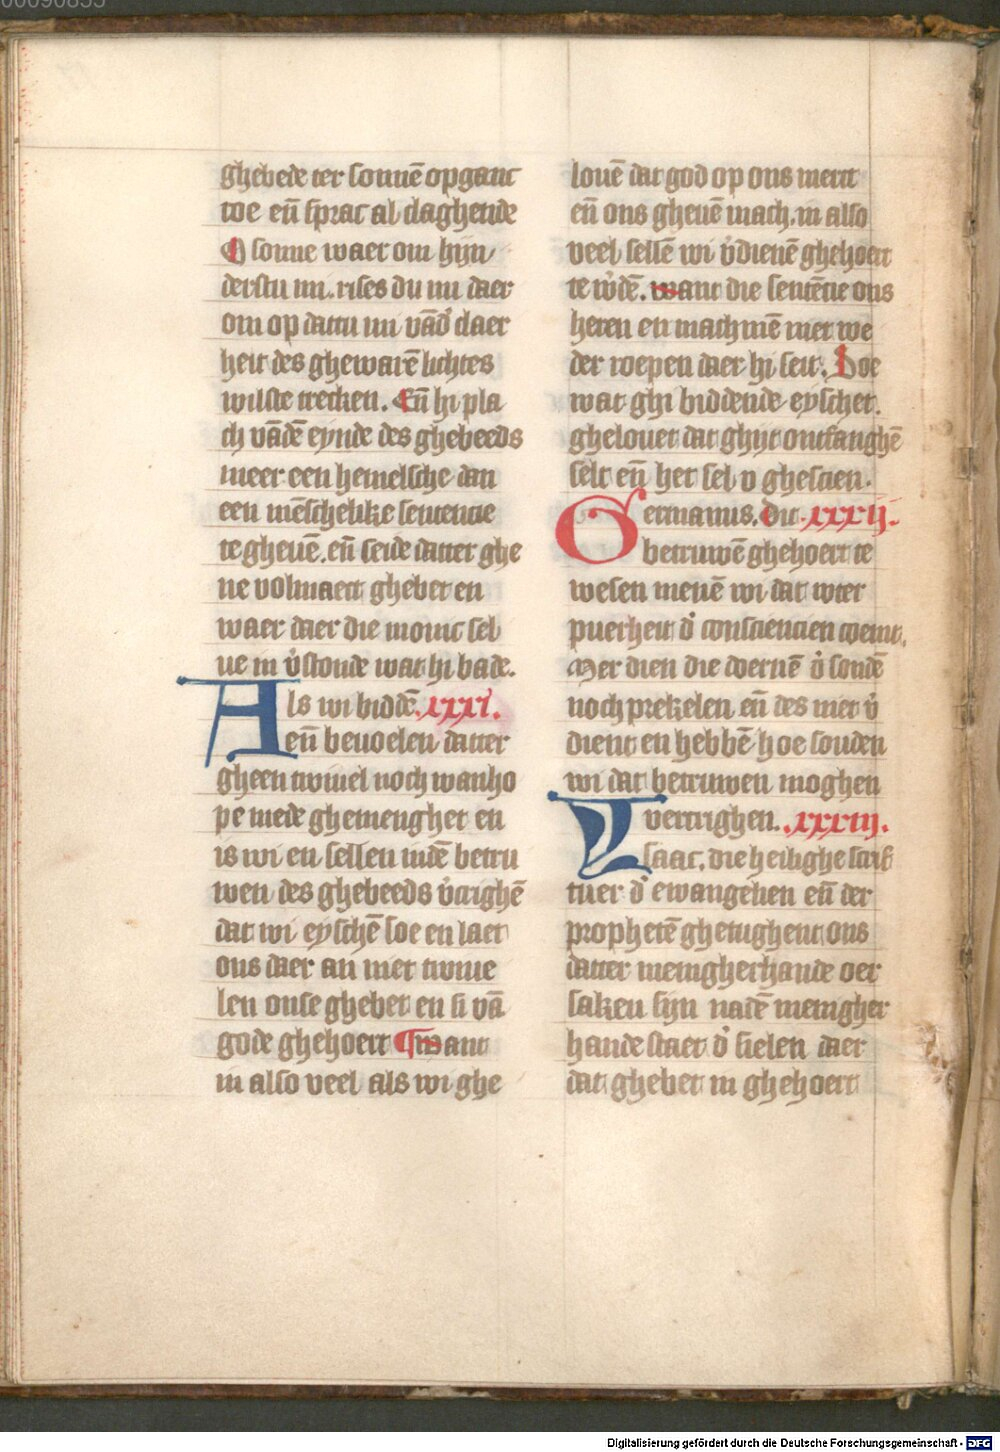 00090855
ghebede ter sonnē opganc
toe en̄ sprac al daghende
O sonne waer om hijn
derstu mi. rises du nu daer
om op dattu mi vād' claer
heit des ghewarē lichtes
wilste trecken. En̄ hi pla
ch vādē eynde des ghebeeds
meer een hemelsche dan
een mēschelike sentencie
te gheuē. en̄ seide datter ghe
ne volmaect ghebet en
waer daer die monic sel
ue in v'stonde wat hi bade.
Als wi biddē. xxxi.
en̄ beuoelen datter
gheen twiuel noch wanho
pe mede ghemenghet en
is wi en sellen indē betru
wen des ghebeeds v'crighē
dat wi eyschē soe en laet
ons daer an niet twiue
len onse ghebet en si vā
gode ghehoert want
in also veel als wi ghe
louē dat god op ons merct
en̄ ons gheuē mach. in also
veel sellē wi v'dienē ghehoert
te w'dē. want die sentēcie ons
heren en machmē niet we
der roepen daer hi seit. Soe
wat ghi biddende eyschet.
ghelouet dat ghijt ontfanghē
selt en̄ het sel v ghescien.
Germanus. Dit xxxij.
betruwē ghehoert te
wesen menē wi dat wter
puerheit d' consciencien coemt.
Mer dien die doernē d' sondē
noch prekelen en̄ des niet v'
dient en hebbē hoe souden
wi dat betruwen moghen
vercrighen. xxxiij.
Ysaac. die heilighe scrif
tuer d' ewangelien en̄ der
prophetē ghetughent ons
datter menigherhande oer
saken sijn nadē menigher
hande staet d' sielen daer
dat ghebet in ghehoert
Digitalisierung gefördert durch die Deutsche Forschungsgemeinschaft - DFG